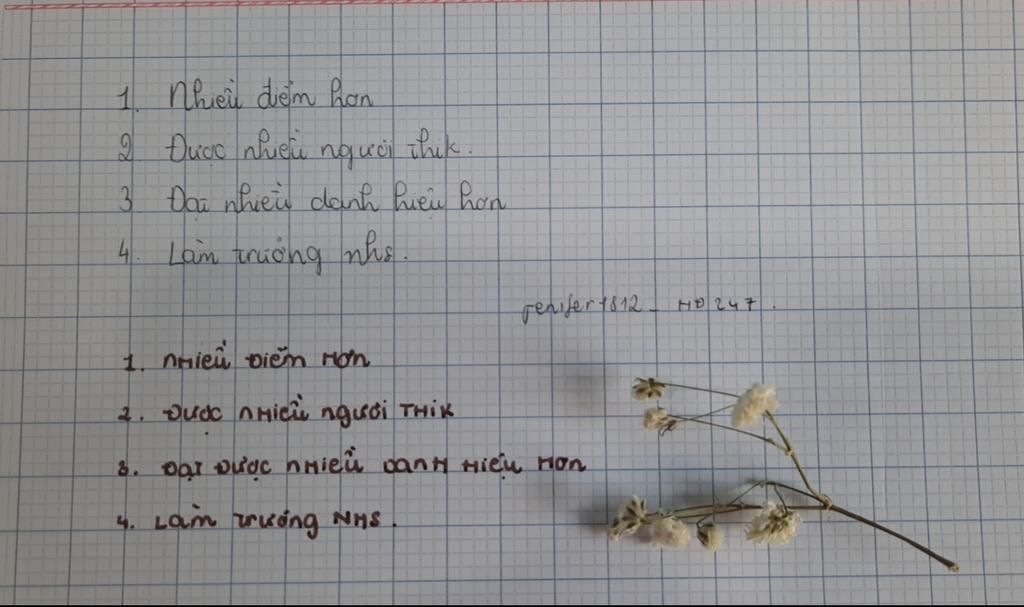 1. Nhiều điểm hơn
2 Được nhiều người thik.
3 Đại nhiều danh hiệu hơn
4. Làm trưởng nhs.
Jenifer1812 _ HD247.
1. NHIỀU ĐIỂM HƠN
2. ĐƯỢC NHIỀU NGƯỜI THIK
3. ĐẠT ĐƯỢC NHIỀU DANH HIỆU HƠN
4. LÀM TRƯỞNG NHS.